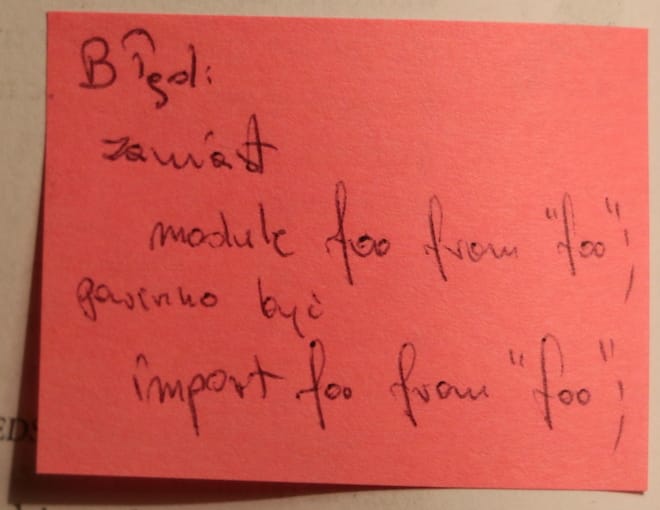 Błąd:
zamiast
module foo from "foo";
powinno być
import foo from "foo";
EDS